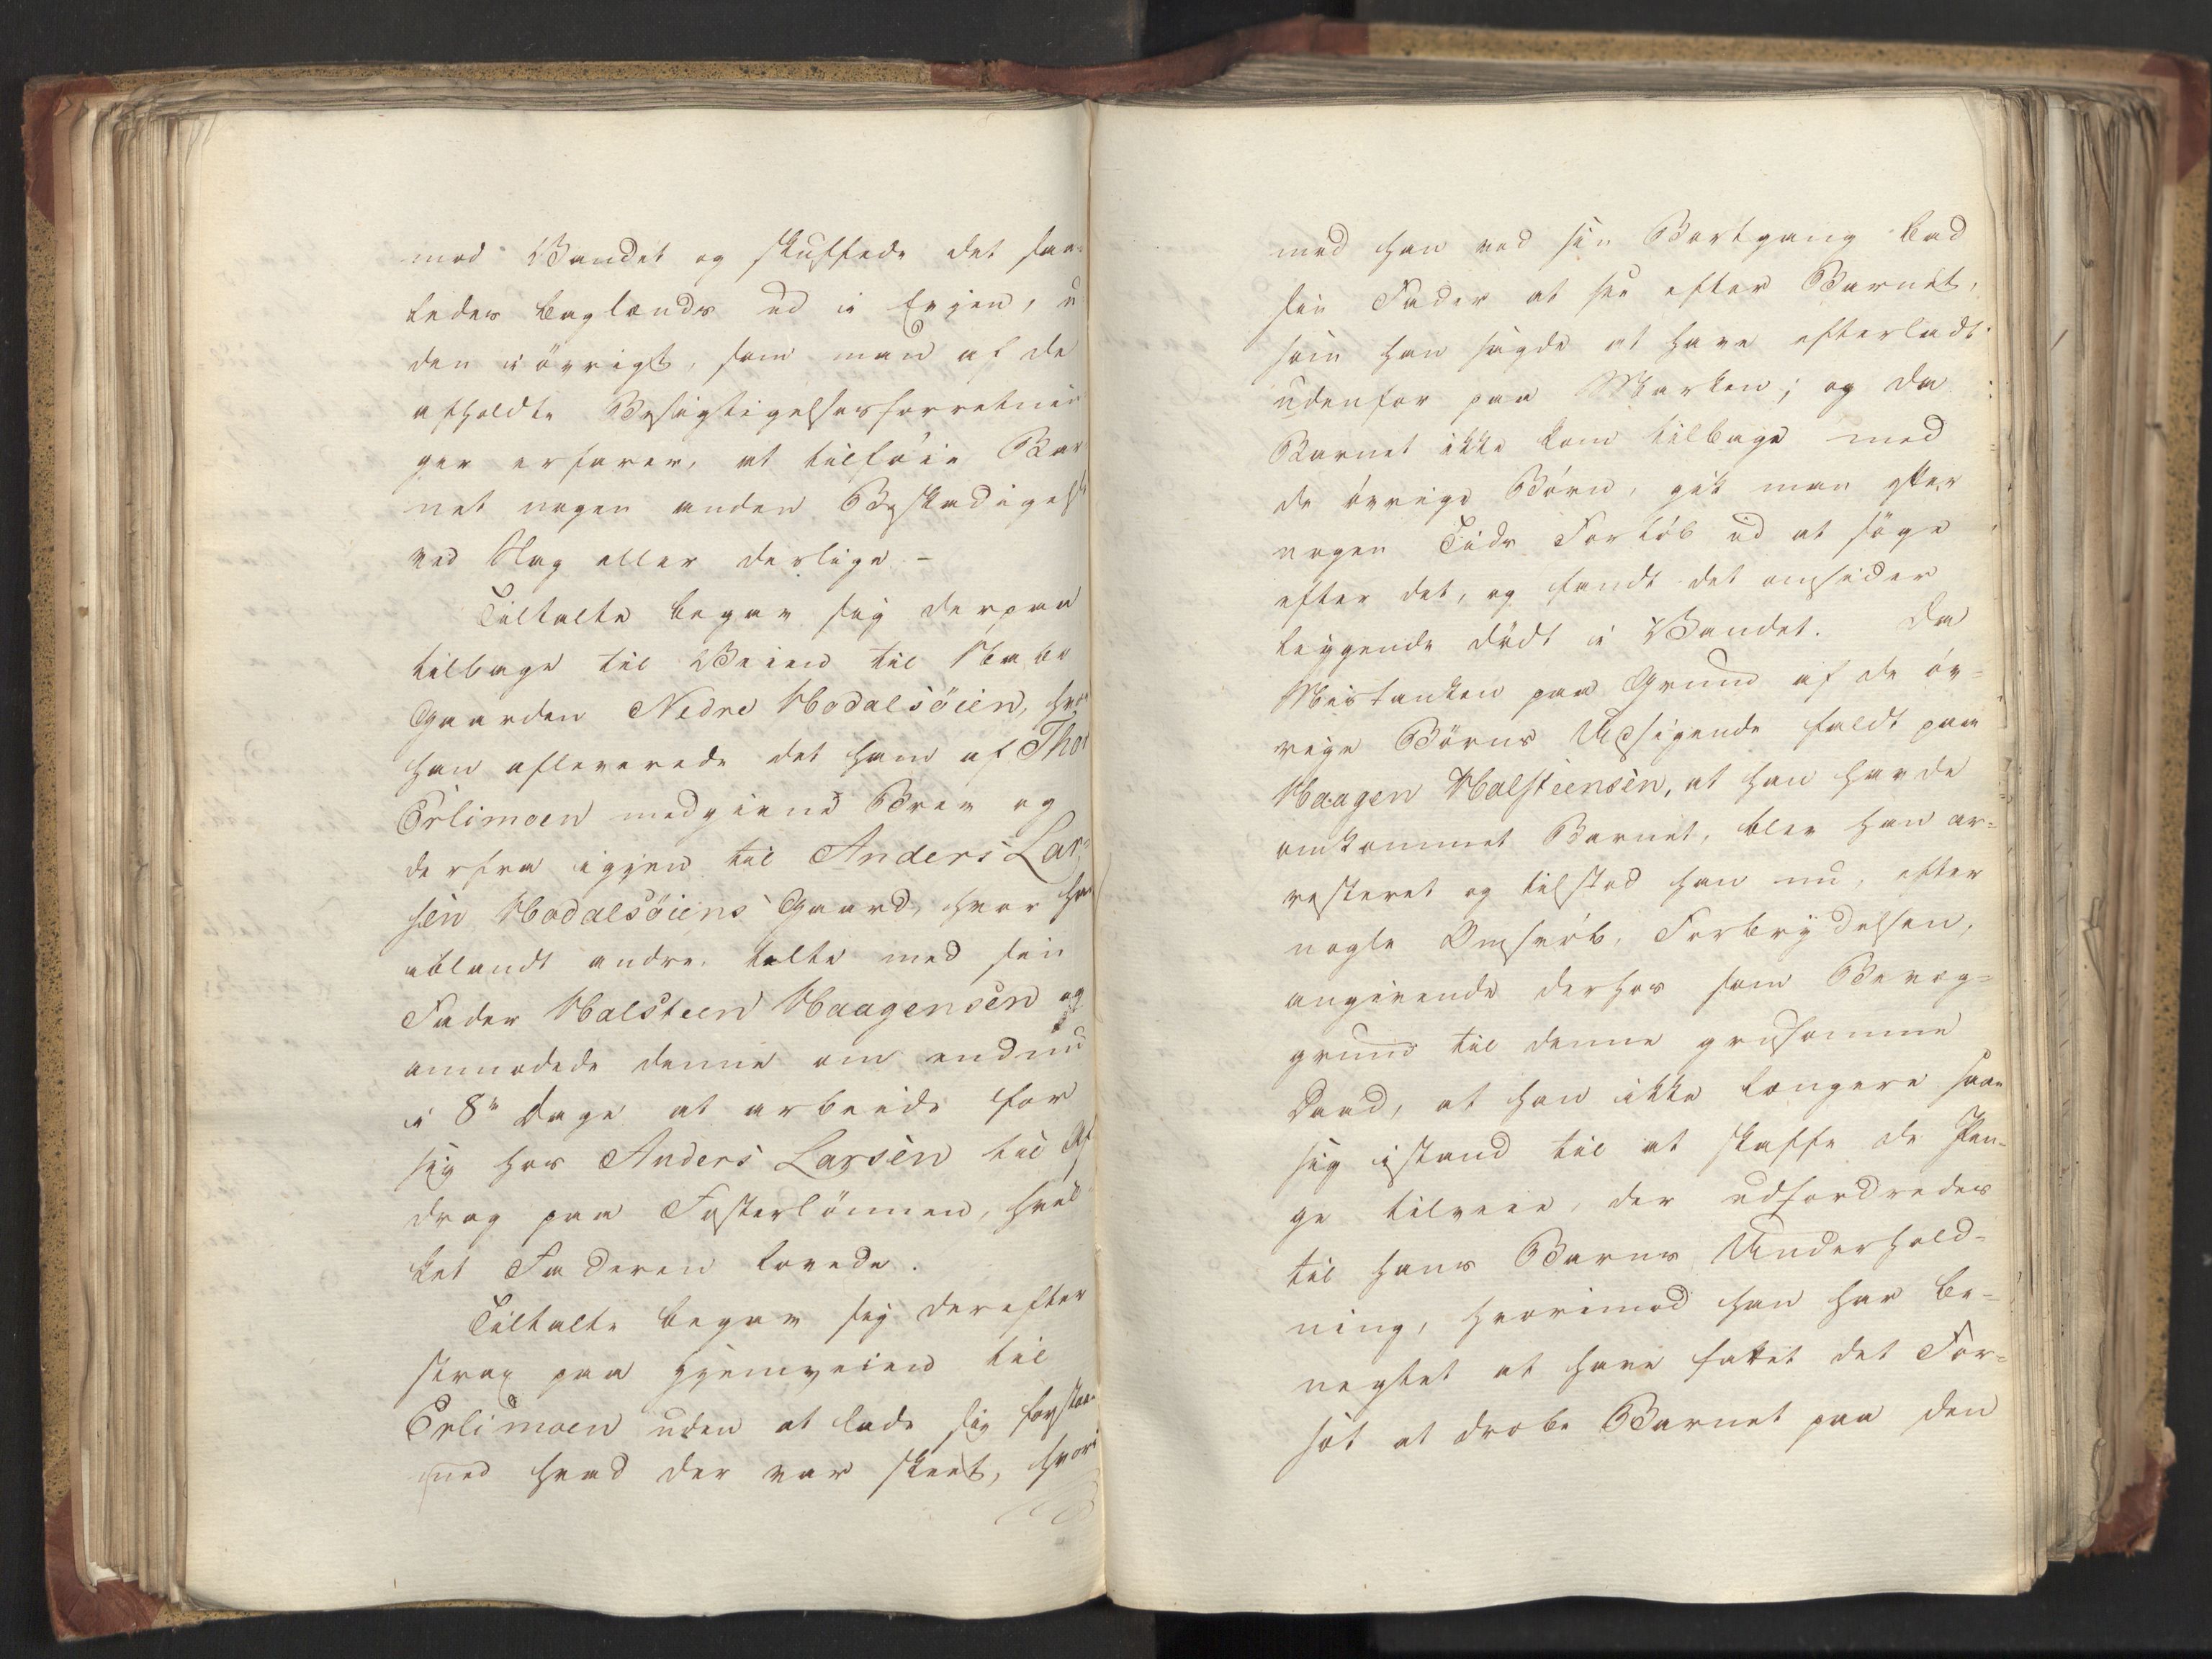 mod Vandet og skuffede det saa-
ledes baglænds ud i Evjen, u
den iövrigt, som man af de
afholdte Besigtigelsesforretnin
ger erfarer, at tilföie Bar
net nogen anden Beskadigelse
ved Slag eller deslige. –
Tiltalte begav sig derpaa
tilbage til Veien til Nabo
Gaarden Nedre Hodalsöien, hvor
han afleverede det ham af Thor
Erlimoen medgivne Brev og
derfra igjen til Anders Lar-
sen Hodalsöiens Gaard, hvor han
iblandt andre talte med sin
Fader Halsteen Haagensen og
anmodede denne om endnu
i 8te Dage at arbeide for
sig hos Anders Larsen til Af
drag paa Fosterlönnen, hvil
ket Faderen lovede.
Tiltalte begav sig derefter
strax paa Hjemveien til
Erlimoen uden at lade sig forstaae
med hvad der var skeet, hvori
mod han ved sin Bortgang bad
sin Fader at see efter Barnet,
som han sagde at have efterladt
udenfor paa Marken; og da
Barnet ikke kom tilbage med
de övrige Börn, gik man efter
nogen Tids Forlöb ud at söge
efter det, og fandt det omsider
liggende dödt i Vandet. Da
Mistanken paa Grund af de öv-
rige Börns Udsigende faldt paa
Haagen Halsteensen, at han havde
omkommet Barnet, blev han ar-
resteret og tilstod han nu, efter
nogle Omsvöb, Forbrydelsen,
angivende derhos som Bevæg-
grund til denne grusomme
Daad, at han ikke længere saae
sig istand til at skaffe de Pen-
ge tilveie, der udfordredes
til hans Barns Underhold-
ning, hvorimod han har be-
negtet at have fattet det For-
sæt at dræbe Barnet paa den